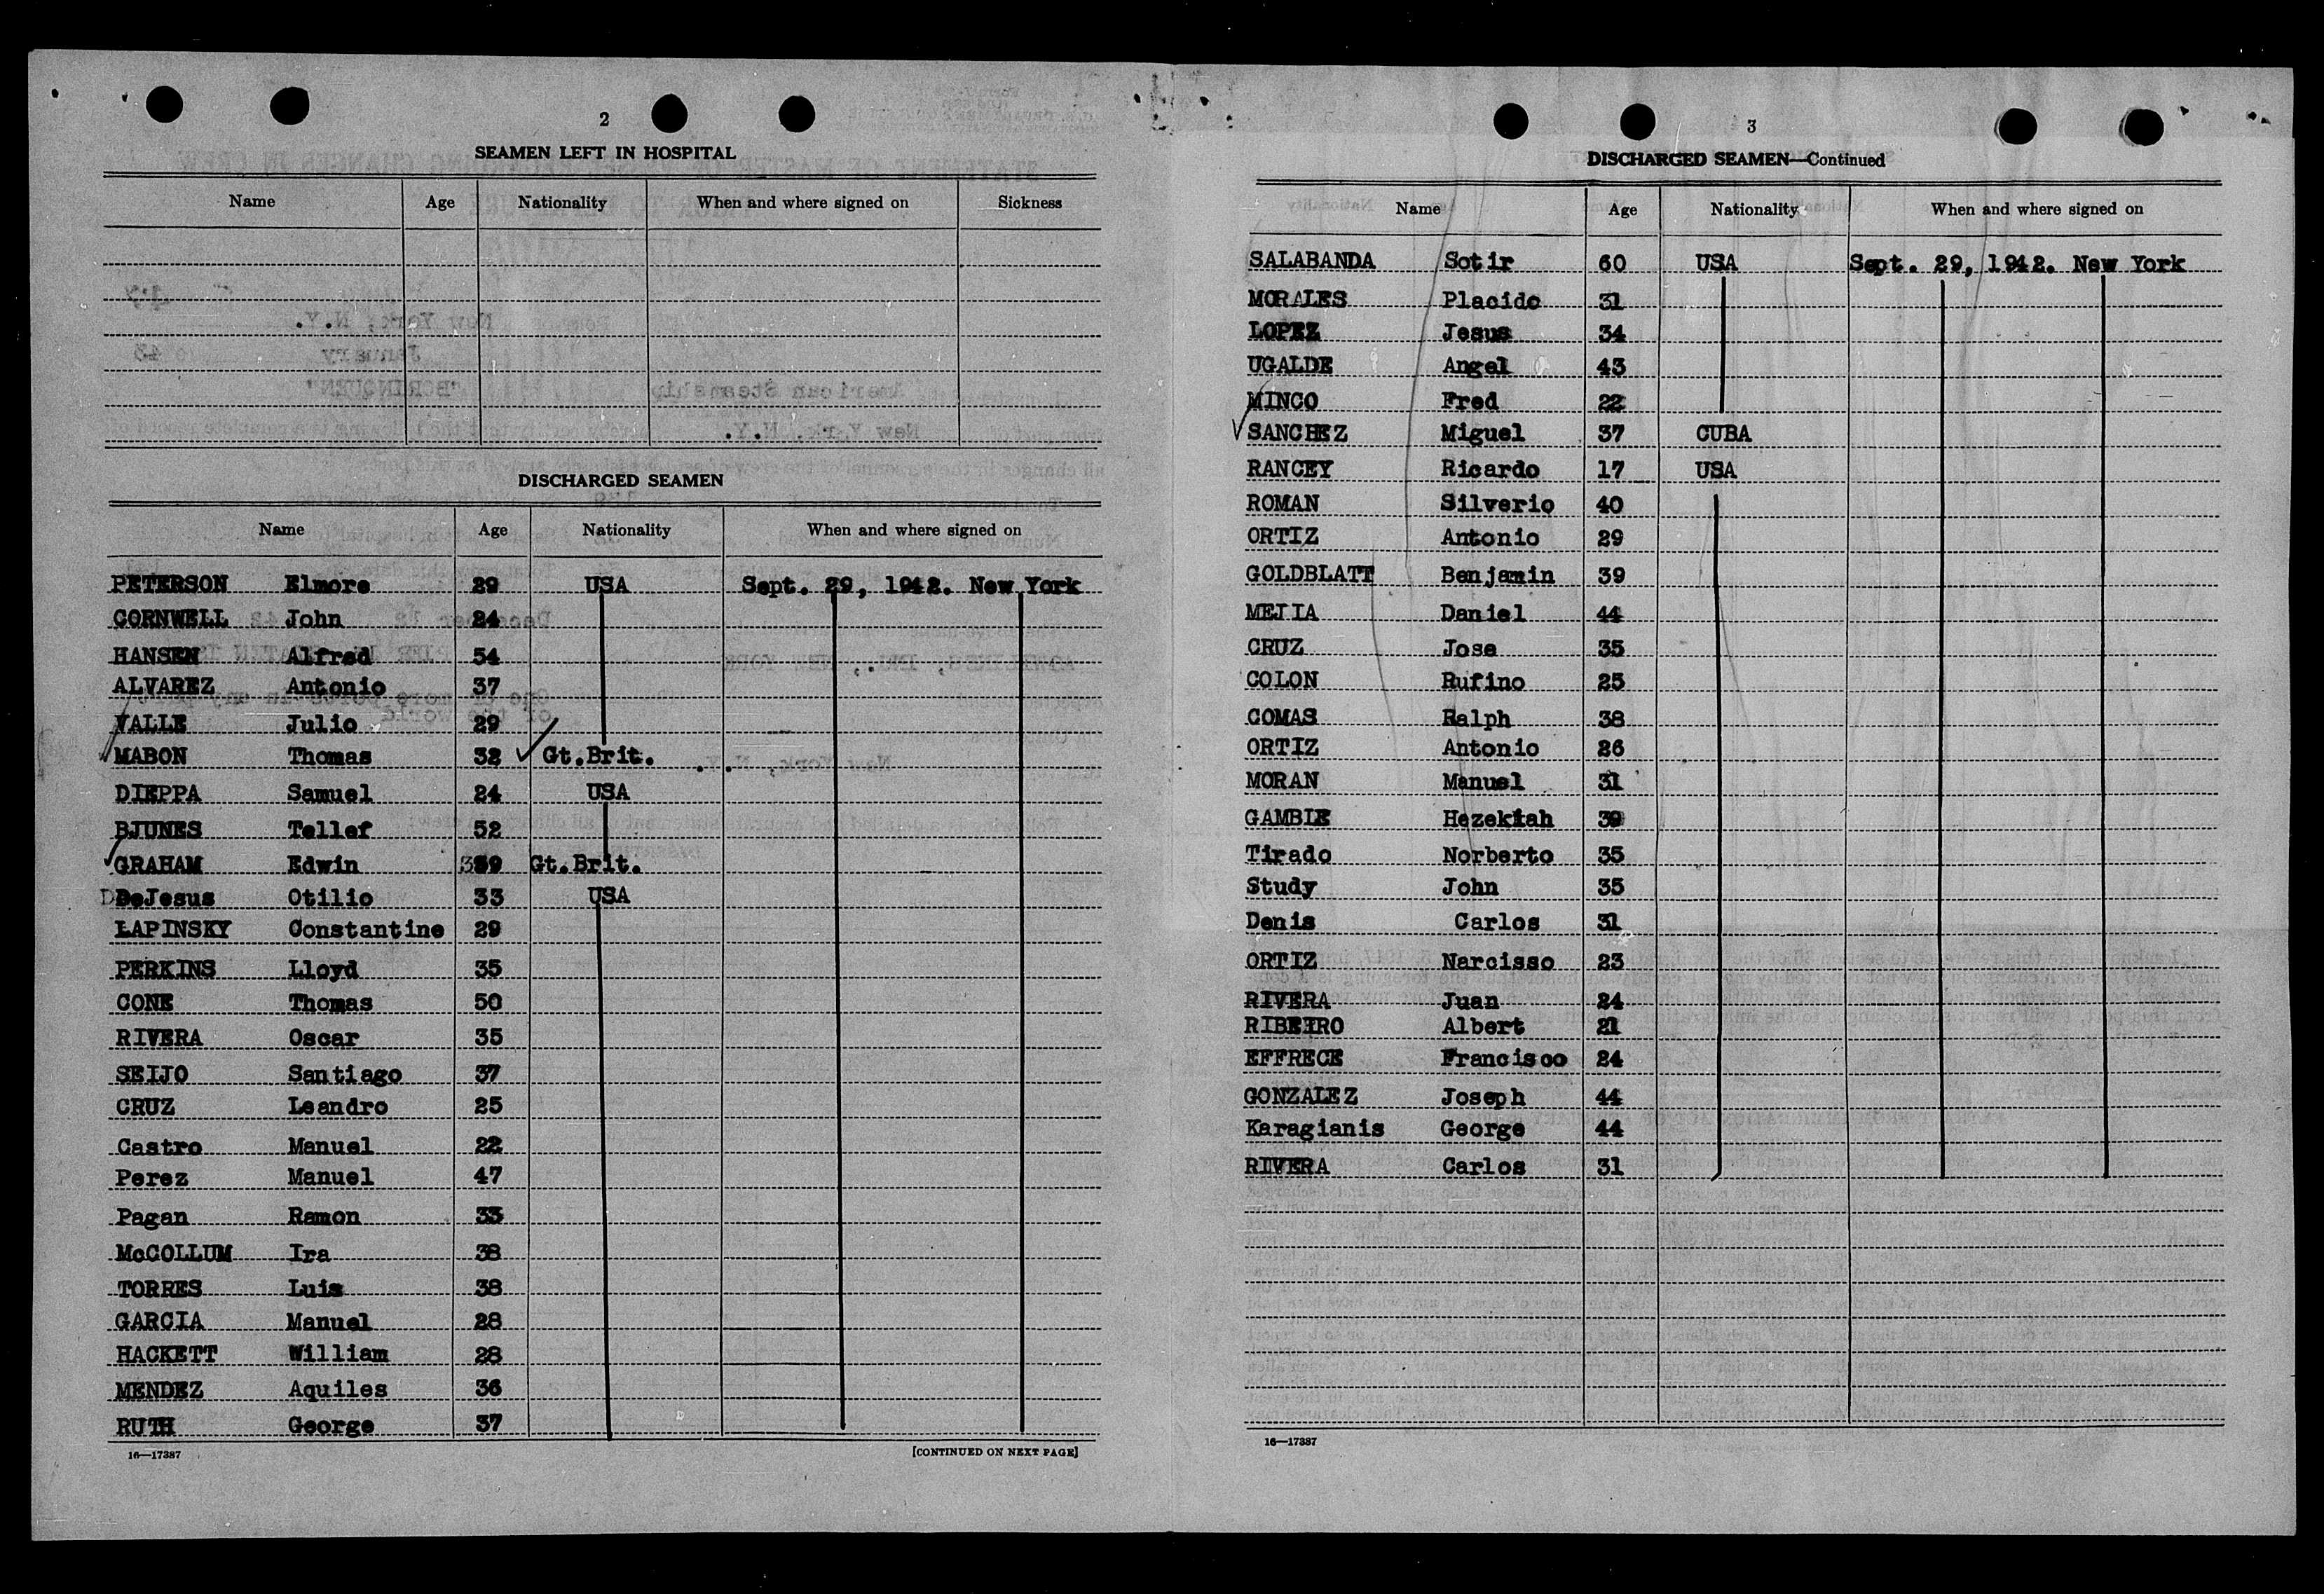 2
SEAMEN LEFT IN HOSPITAL
Name Age Nationality When and where signed on Sickness
DISCHARGED SEAMEN
Name Age Nationality When and where signed on
PETERSON Elmore 29 USA Sept. 29, 1942. New York
CORNWELL John 24
HANSEN Alfred 54
ALVAREZ Antonio 37
VALLE Julio 29
MABON Thomas 32 Gt.Brit.
DIEPPA Samuel 24 USA
BJUNES Tellef 52
GRAHAM Edwin 39 Gt.Brit.
DeJesus Otilio 33 USA
LAPINSKY Constantine 29
PERKINS Lloyd 35
CONE Thomas 50
RIVERA Oscar 35
SEIJO Santiago 37
CRUZ Leandro 25
Castro Manuel 22
Perez Manuel 47
Pagan Ramon 33
McCOLLUM Ira 38
TORRES Luis 38
GARCIA Manuel 28
HACKETT William 28
MENDEZ Aquiles 36
RUTH George 37
16—17387 [CONTINUED ON NEXT PAGE]
3
DISCHARGED SEAMEN—Continued
Name Age Nationality When and where signed on
SALABANDA Sotir 60 USA Sept. 29, 1942. New York
MORALES Placido 31
LOPEZ Jesus 34
UGALDE Angel 43
MINCO Fred 22
SANCHEZ Miguel 37 CUBA
RANCEY Ricardo 17 USA
ROMAN Silverio 40
ORTIZ Antonio 29
GOLDBLATT Benjamin 39
MEJIA Daniel 44
CRUZ Jose 35
COLON Rufino 25
COMAS Ralph 38
ORTIZ Antonio 26
MORAN Manuel 31
GAMBLE Hezekiah 39
Tirado Norberto 35
Study John 35
Denis Carlos 31
ORTIZ Narcisso 23
RIVERA Juan 24
RIBEIRO Albert 21
EFFRECE Francisco 24
GONZALEZ Joseph 44
Karagianis George 44
RIVERA Carlos 31
16—17387